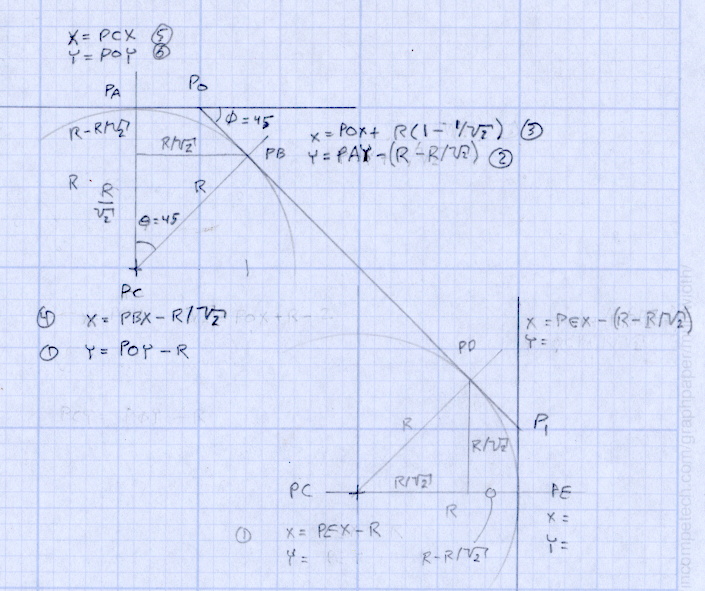 X = PCX ⑤
Y = POY ⑥
PA
P0
φ = 45
R-R/√2
R/√2
PB
X = POX + R(1 - 1/√2) ③
Y = PAY - (R - R/√2) ②
R
R/√2
R
θ = 45
PC
④ X = PBX - R/√2
① Y = POY - R
X = PEX - (R - R/√2)
Y =
PD
P1
R
R/√2
PC
R/√2
PE
R
X =
Y =
① X = PEX - R
Y =
R - R/√2
incompetech.com/graphpaper/